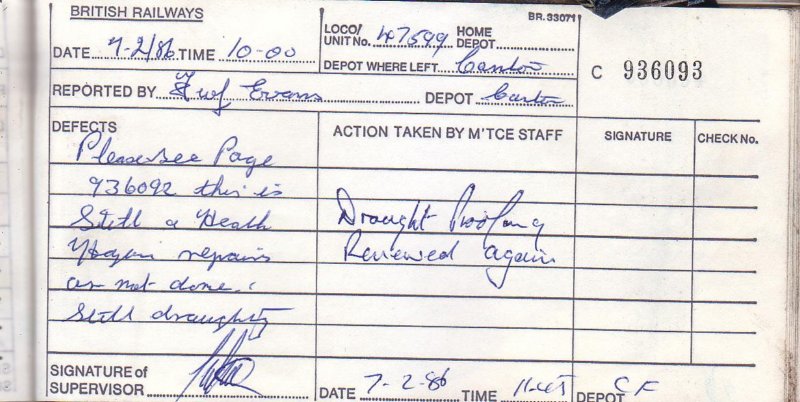 BRITISH RAILWAYS
BR. 33071
DATE 7-2/86 TIME 10-00
LOCO/ UNIT No. 47599 HOME DEPOT
DEPOT WHERE LEFT Canton
C 936093
REPORTED BY Evans DEPOT Canton
DEFECTS
ACTION TAKEN BY M'TCE STAFF
SIGNATURE
CHECK No.
Please see Page
936092 this is
Still a Heath
repairs
as not done.
Still draughty
Draught Proofing
Renewed again
SIGNATURE of SUPERVISOR
DATE 7-2-86 TIME 11-45 DEPOT CF